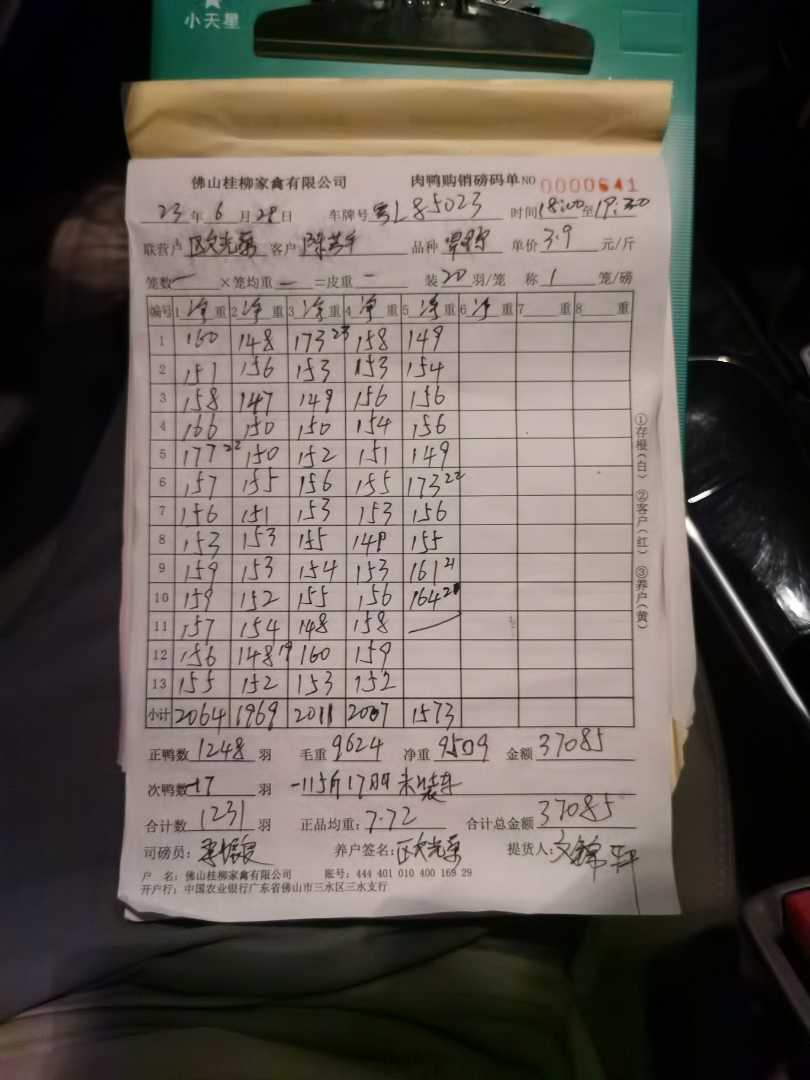 小天星
佛山桂柳家禽有限公司 肉鸭购销磅码单NO 0000641
23年6月28日 车牌号 粤L85023 时间18:00至19:30
联营户 区光荣 客户 品种 单价3.9元/斤
笼数一×笼均重一=皮重一 装20羽/笼 称1笼/磅
编号 1净重 2净重 3净重 4净重 5净重 6净重 7重 8重
1 160 148 173 23 158 149
2 151 156 153 153 154
3 158 147 149 156 156
4 166 150 150 154 156
5 177 22 150 152 151 149
6 157 155 156 155 173 22
7 156 151 153 153 156
8 153 153 155 149 155
9 159 153 154 153 161 21
10 159 152 155 156 164 21
11 157 154 148 158
12 156 148 19 160 159
13 155 152 153 152
小计 2064 1969 2011 2007 1573
正鸭数1248羽 毛重9624 净重9509 金额37085
次鸭数-17羽 -115斤17羽未装车
合计数1231羽 正品均重:7.72 合计总金额37085
司磅员: 养户签名:区光荣 提货人:
户 名:佛山桂柳家禽有限公司 账号:444 401 010 400 169 29
开户行:中国农业银行广东省佛山市三水区三水支行
①存根(白) ②客户(红) ③养户(黄)